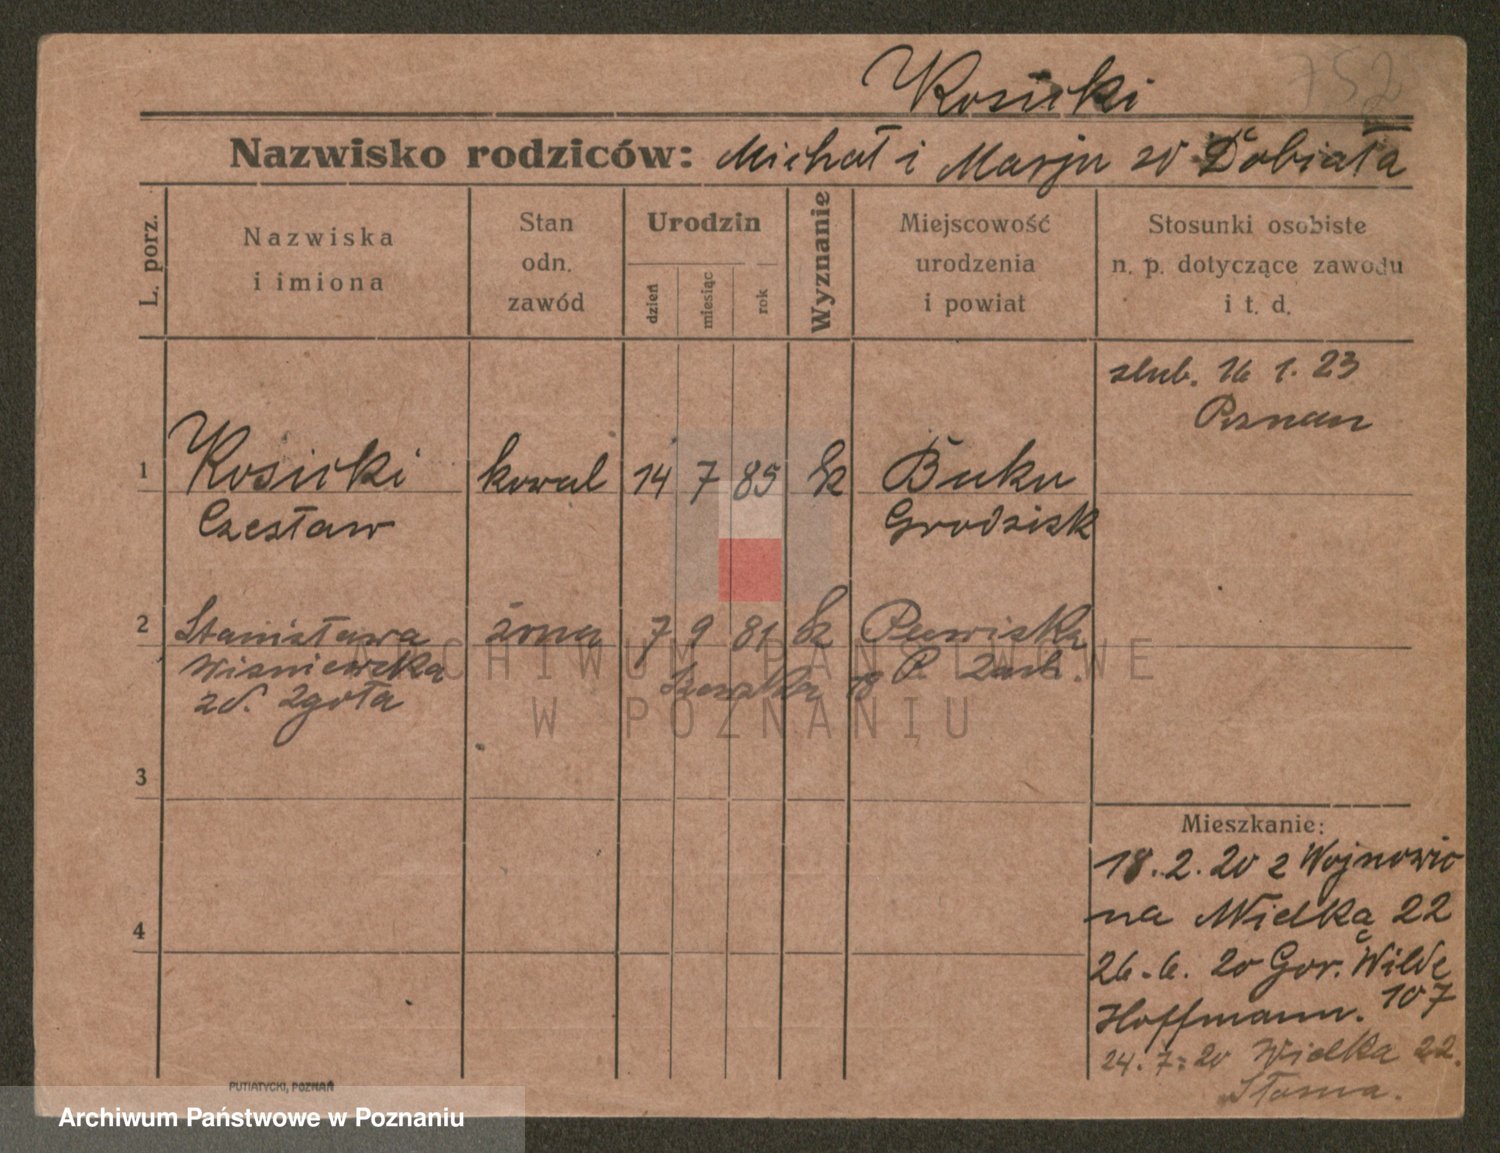 Kosicki 752
Nazwisko rodziców: Michał i Marja zd Dobiała
L. porz.
Nazwiska i imiona
Stan odn. zawód
Urodzin
dzień miesiąc rok
Wyznanie
Miejscowość urodzenia i powiat
Stosunki osobiste n. p. dotyczące zawodu i t. d.
slub. 16 1. 23
Poznan
1 Kosicki kowal 14 7 85 k Buku
Czesław Grodzisk
2 Stanisława żona 7 9 81 k
Wisniewska P.
zd. Zgoła 18
3
4
Mieszkanie:
18. 2. 20 z Wojnowic
na Wielką 22
26. 6. 20 Gór. Wilde
Hoffmann. 107
24. 7. 20 Wielka 22.
PUTIATYCKI, POZNAŃ
ARCHIWUM PAŃSTWOWE
W POZNANIU
Archiwum Państwowe w Poznaniu